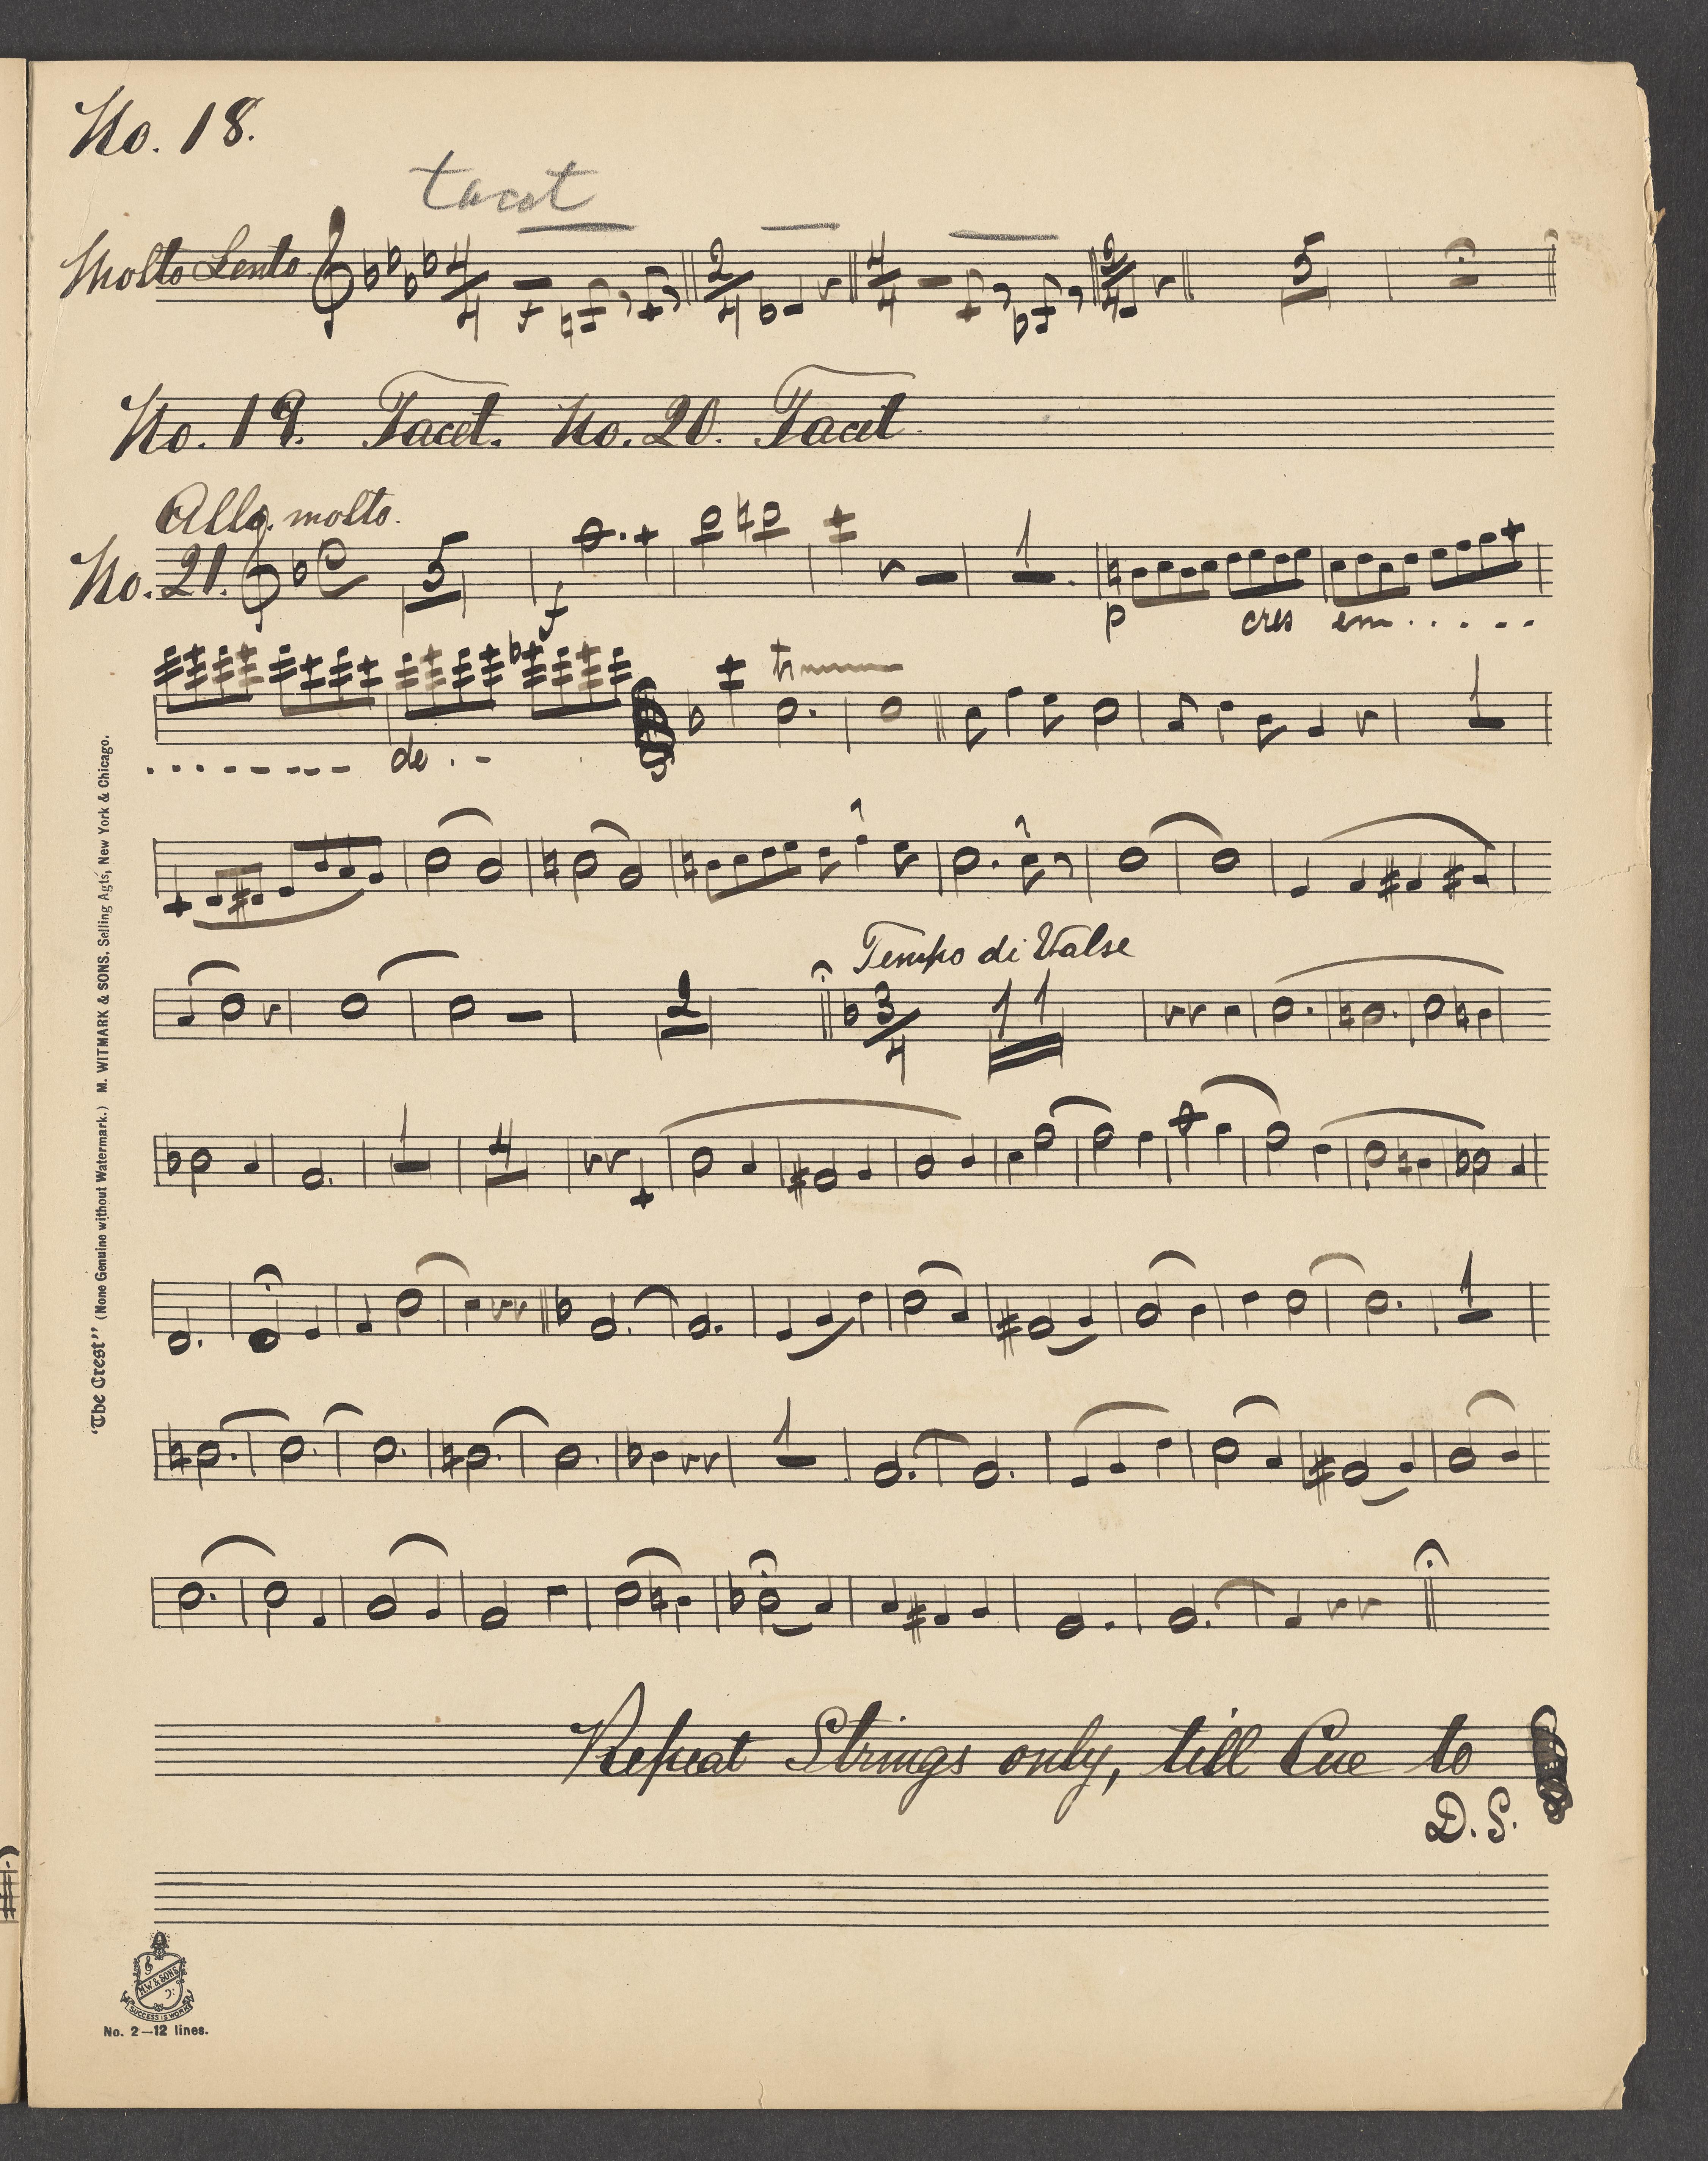 No. 18.
tacet
Molto Lento 4/4 2/4 4/4 2/4 5
No. 19. Tacet. No. 20. Tacet.
Allo. molto.
No. 21. 5 1
f p cres en . . . . .
tr 1
. . . . . - - - de . -
Tempo di Valse
2 3/4 11
1 4
1
1
Repeat Strings only, till Cue to
D.S.
"The Crest" (None Genuine without Watermark.) M. WITMARK & SONS. Selling Agts, New York & Chicago.
M.W & SONS
SUCCESS IS WORK
No. 2—12 lines.